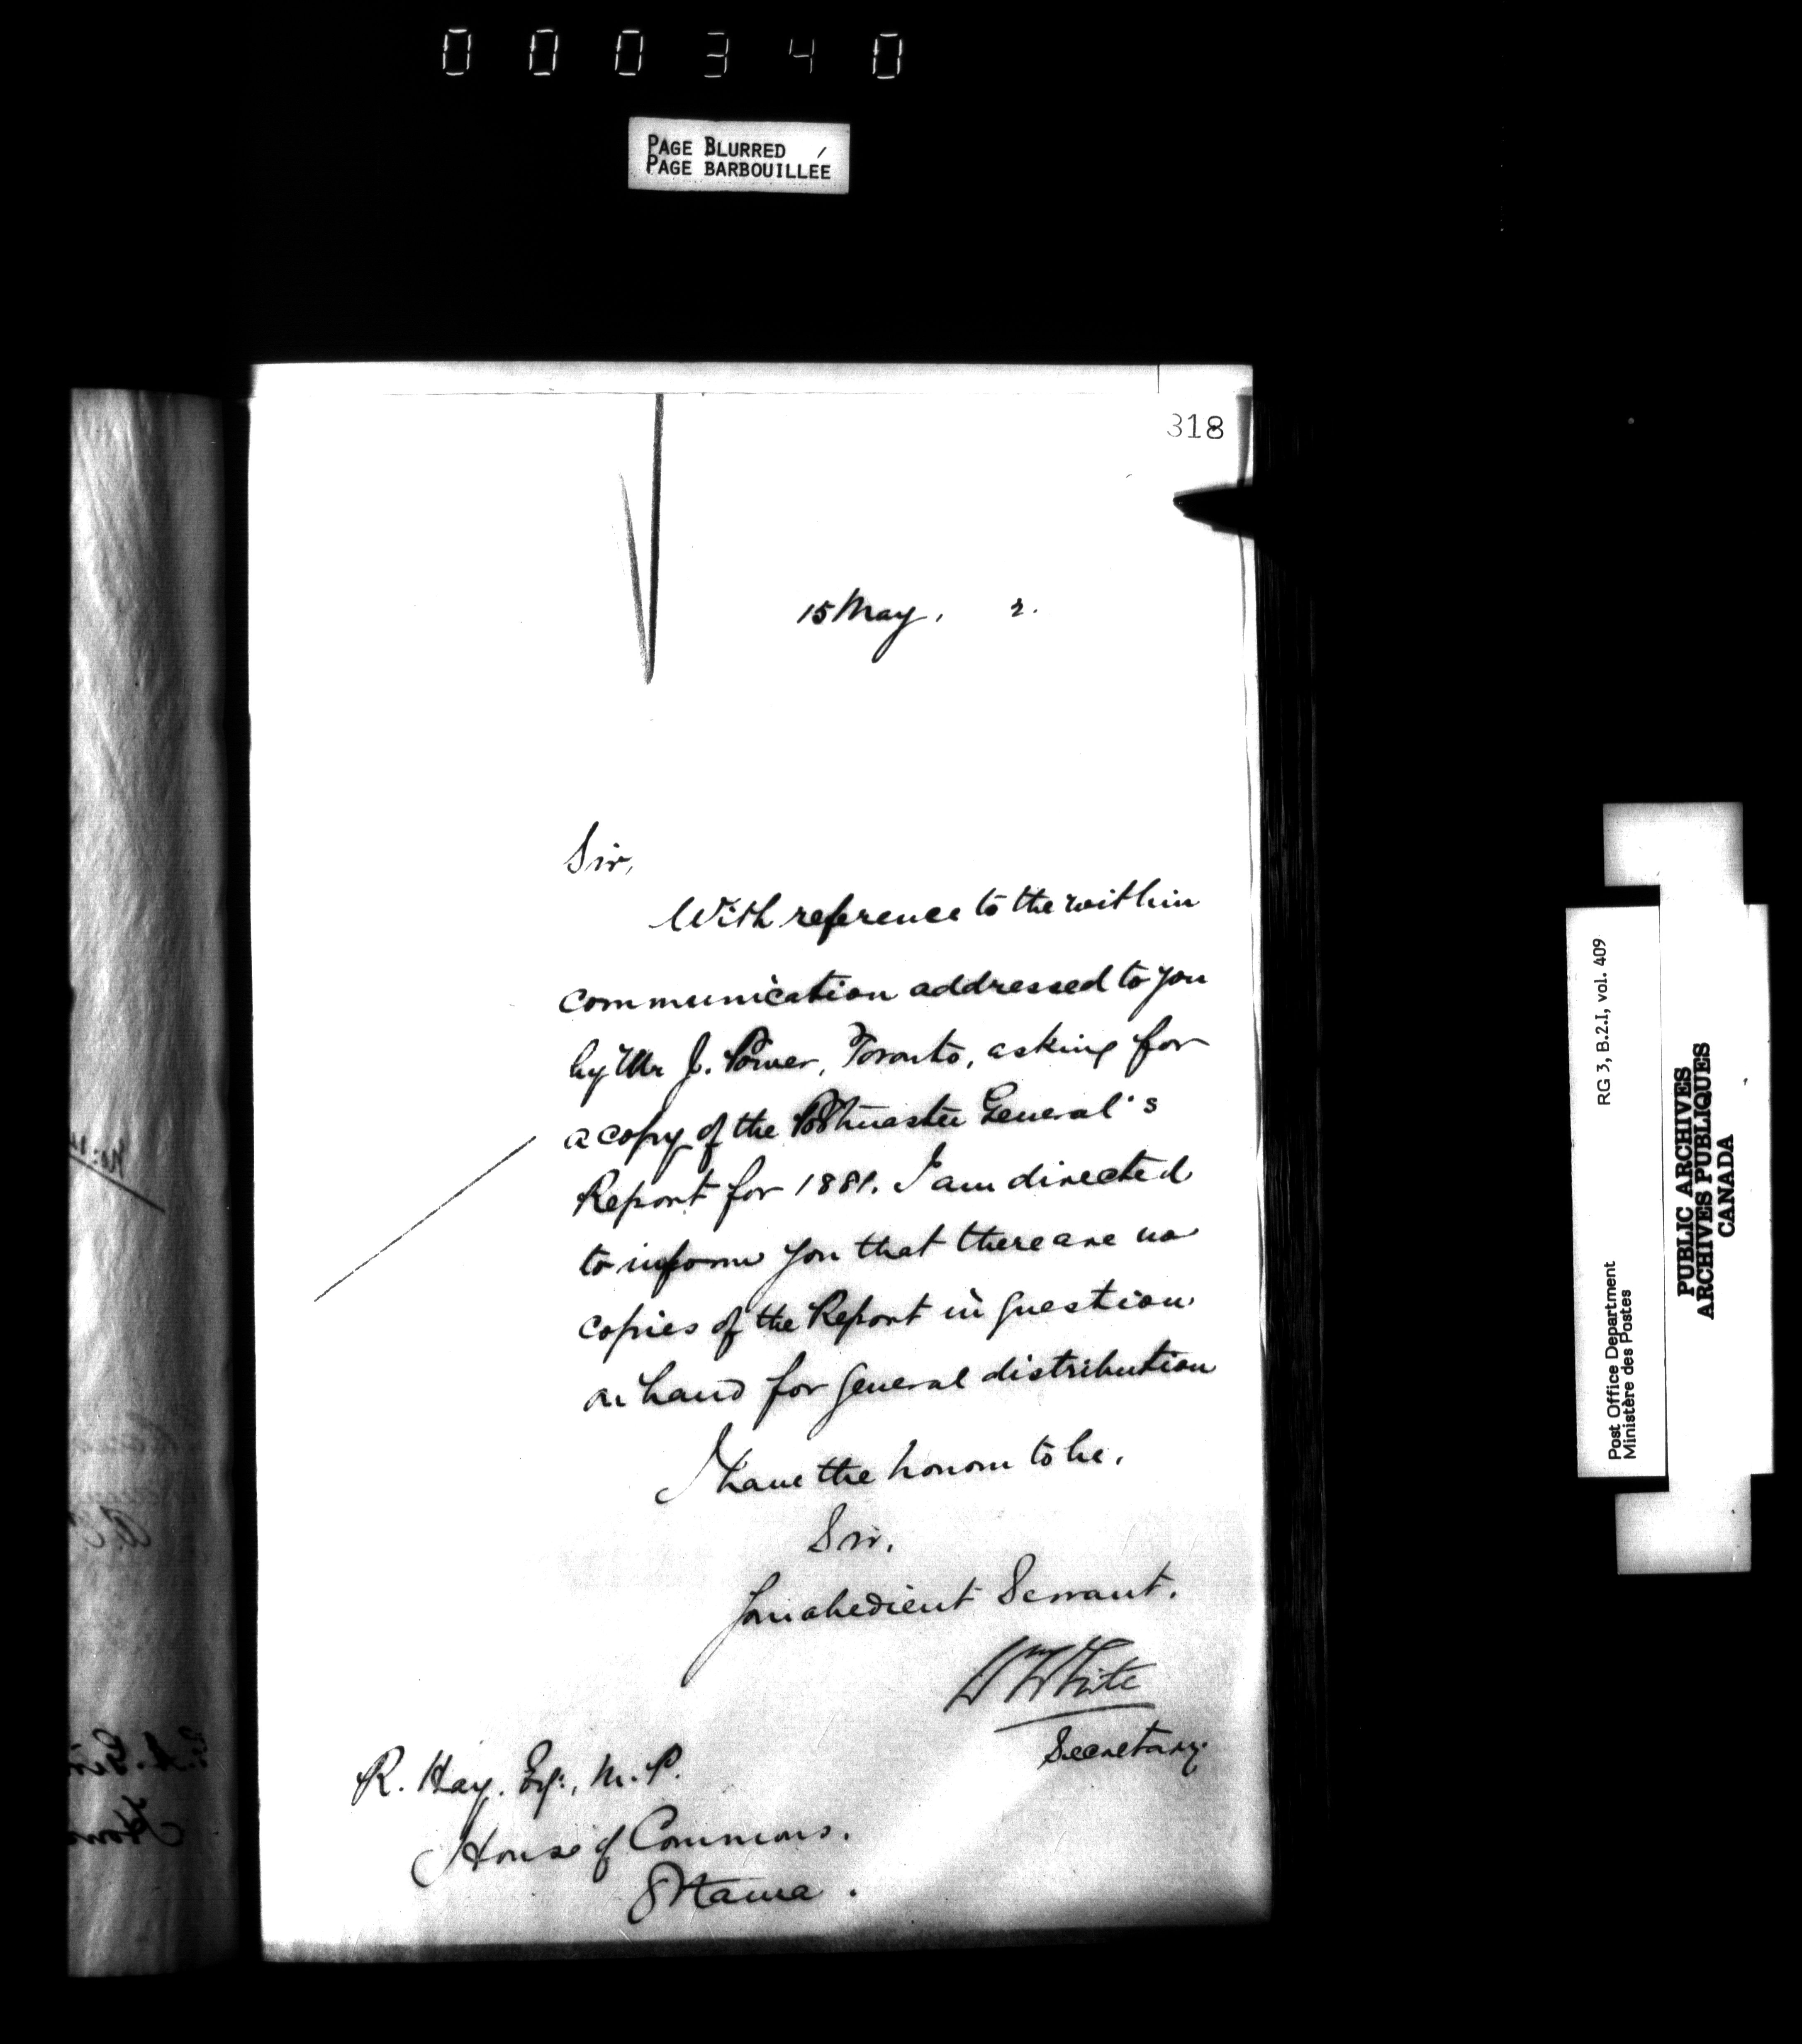 000340
PAGE BLURRED
PAGE BARBOUILLÉE
318
15 May, 2.
Sir,
With reference to the within
communication addressed to you
by Mr J. Power, Toronto, asking for
a copy of the Postmaster General's
Report for 1881. I am directed
to inform you that there are no
copies of the Report in question
on hand for general distribution
I have the honour to be,
Sir,
Your obedient Servant.
Wm White
Secretary.
R. Hay. Esq:, M.P.
House of Commons.
Ottawa.
RG 3, B.2.I, vol. 409
Post Office Department
Ministère des Postes
PUBLIC ARCHIVES
ARCHIVES PUBLIQUES
CANADA